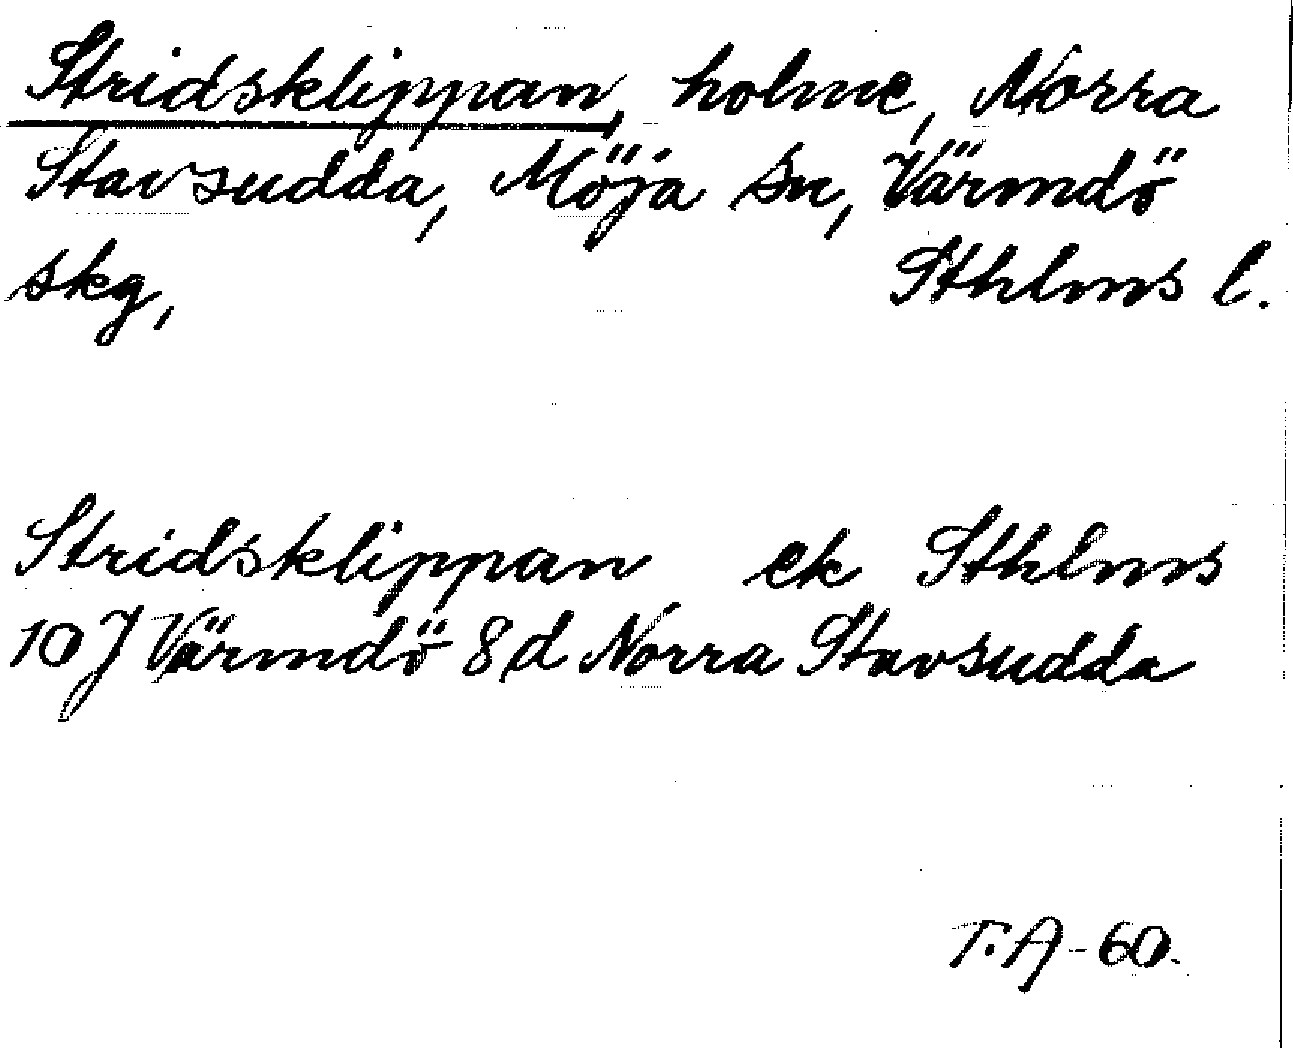 Stridsklippan, holme, Norra
Stavsudda, Möja sn, Värmdö
skg, Sthlms l.
Stridsklippan ek Sthlms
10 J Värmdö 8 d Norra Stavsudda
T.A-60.